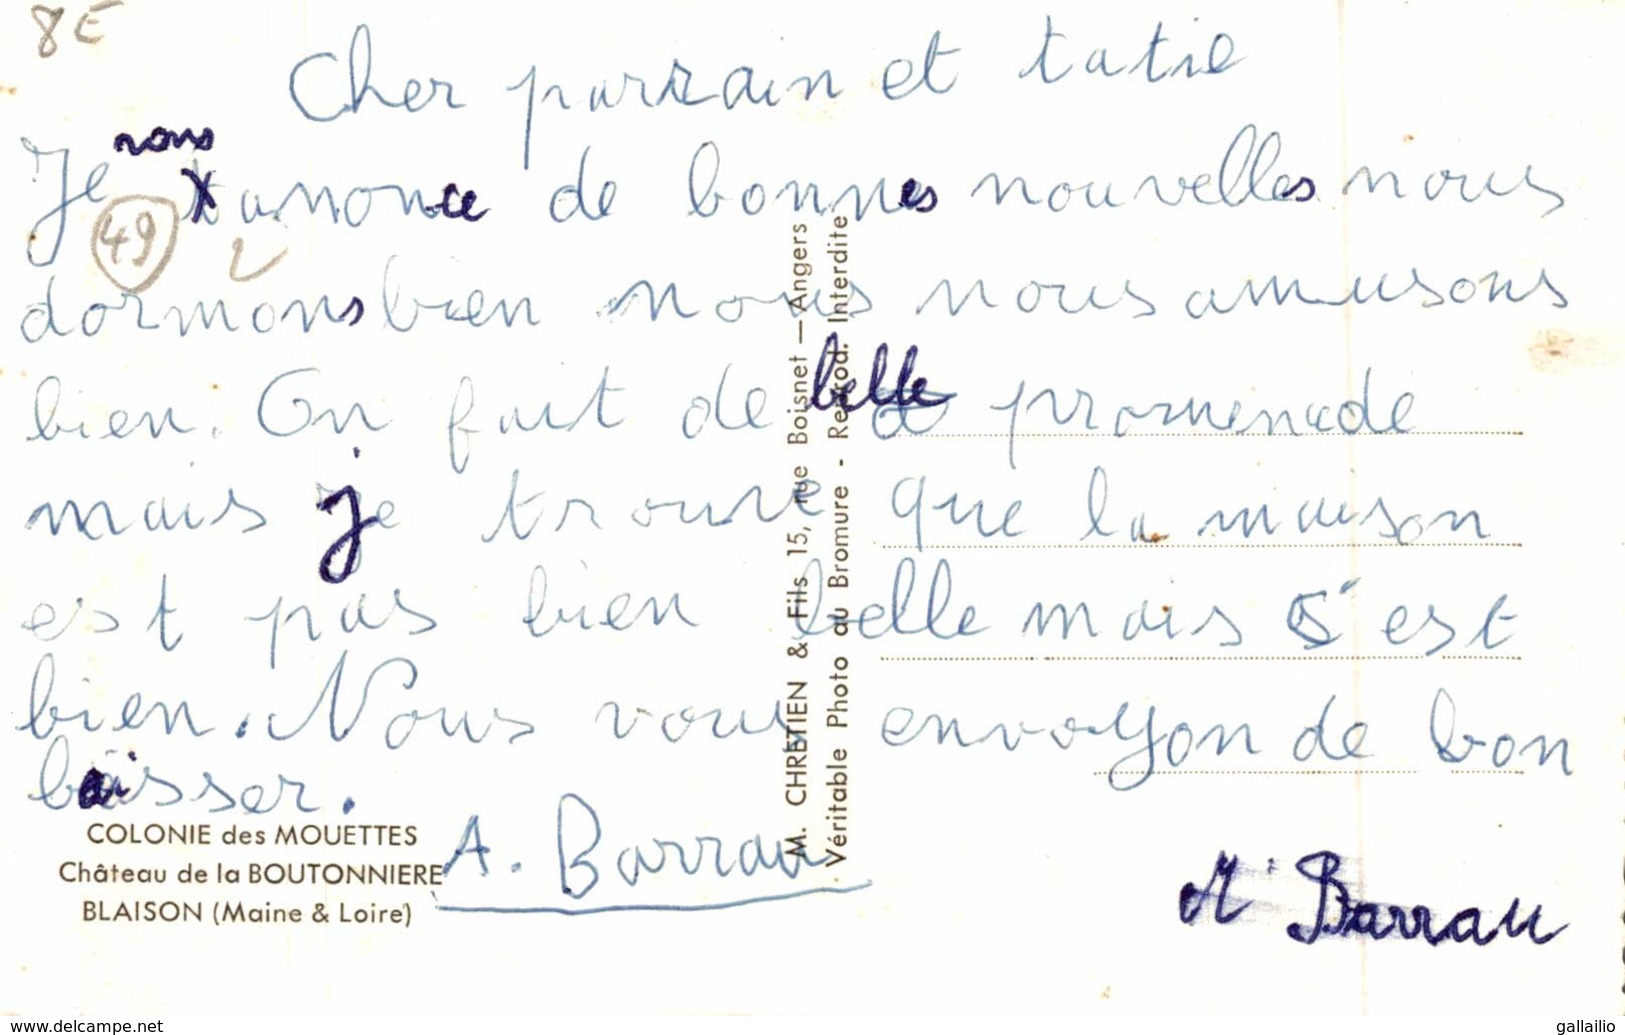 8€
Cher parrain et tatie
Je nous anonce de bonnes nouvelles nous
49
2
dormons bien nous nous amusons
bien. On fait de belle promenade
mais je trouve que la maison
est pas bien belle mais s'est
bien. Nous vous envoyon de bon
baisser.
A. Barrau
M. Barrau
COLONIE des MOUETTES
Château de la BOUTONNIERE
BLAISON (Maine & Loire)
M. CHRETIEN & Fils 15, rue Boisnet — Angers
Véritable Photo au Bromure - Reprod. Interdite
www.delcampe.net
gallailio